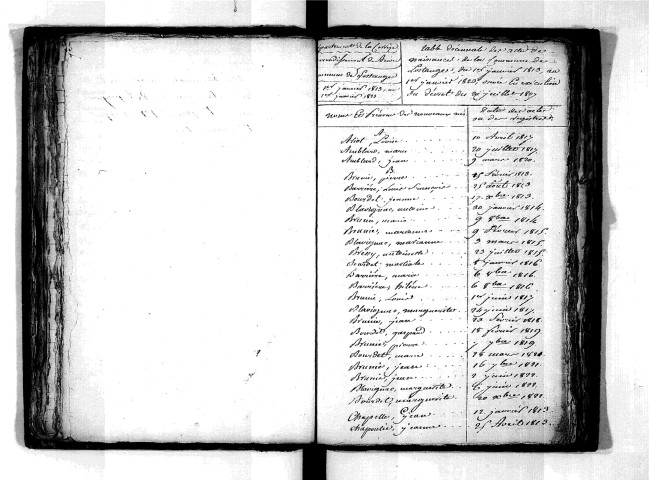 département de la Corrèze
arrondissement de Brive
commune de Lostanges
1er janvier 1813, au
1er janvier 1823
table décennale des actes de
naissance de la commune de
Lostanges, du 1er janvier 1813, au
1er janvier 1823, suivant l'exécution
du décret du 20 juillet 1807
noms et Prénoms des nouveaux nés
Dates des actes
ou des registres
A
Aliot, Louise 10 Avril 1817
Amblard, marie 20 juillet 1817
Amblard, jean 9 mars 1820
B
Brunie, pierre 25 février 1813
Barrière, Louis François 25 août 1813
Bourdet, jeanne 17 xbre 1813
Blavignac, antoine 20 janvier 1814
Brunie, marie 9 8bre 1814
Brunie, marianne 9 février 1815
Blavignac, marianne 3 mars 1815
Bressy, antoinette 23 juillet 1815
Bourdet, martiale 8 janvier 1816
Barrière, marie 6 8bre 1816
Barrière, hélène 6 8bre 1816
Brunie, Louis 1er juin 1817
Blavignac, marguerite 24 juin 1817
Brunie, jean 20 février 1818
Bourdet, gaspard 18 février 1819
Brunie, pierre 7 7bre 1819
Bourdet, marie 28 mars 1820
Brunie, jeanne 16 7bre 1821
Brunie, jean 2 juin 1822
Blavignac, marguerite 6 juin 1822
Bourdet, marguerite 20 xbre 1822
Chapelle, jean 12 janvier 1813
Chapoulie, jeanne 25 Avril 1813